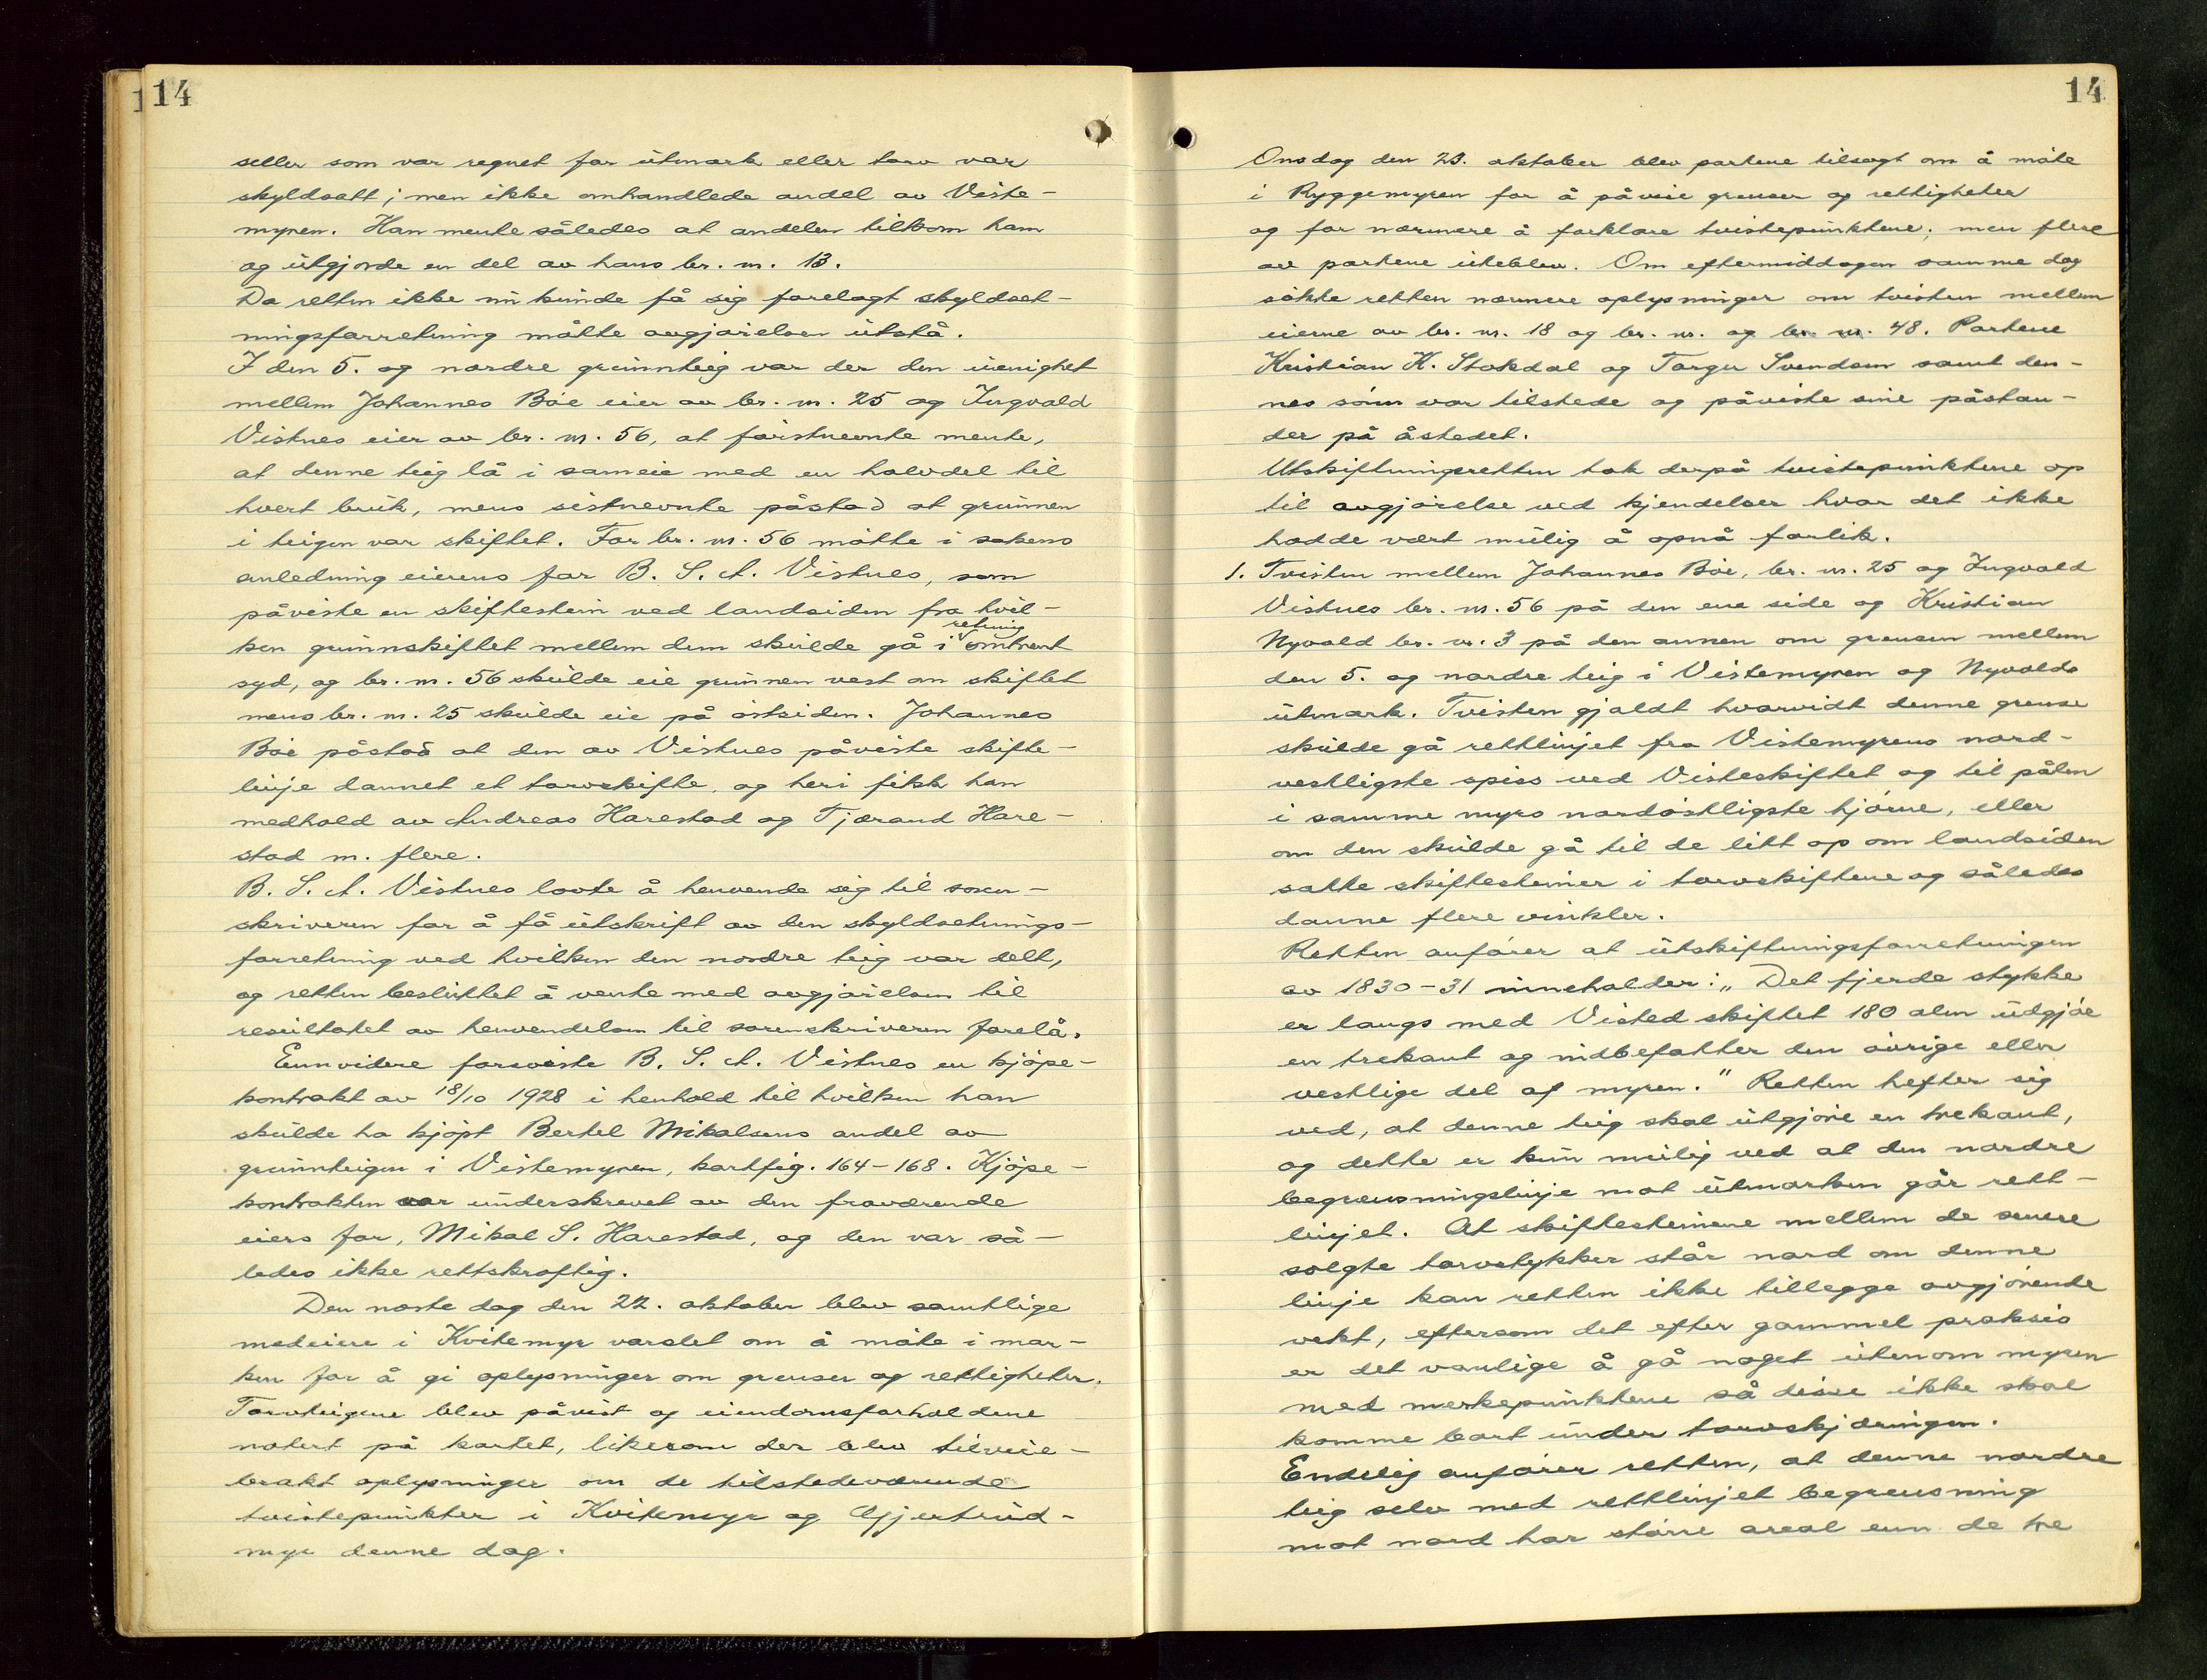 14
seller som var regnet for utmark eller torv var
skyldsatt; men ikke omhandlede andel av Viste-
myren. Han mente således at andelen tilkom ham
og utgjorde en del av hans br. nr. 13.
Da retten ikke nu kunde få sig forelagt skyldset-
ningsforretning måtte avgjørelsen utstå.
I den 5. og nordre grunnteig var der den uenighet
mellem Johannes Bøe eier av br. nr. 25 og Ingvald
Vistnes eier av br. nr. 56, at førstnevnte mente,
at denne teig lå i sameie med en halvdel til
hvert bruk, mens sistnevnte påstod at grunnen
i teigen var skiftet. For br. nr. 56 møtte i sakens
anledning eierens far B. S. A. Vistnes, som
påviste en skiftestein ved landsiden fra hvil-
ken grunnskiftet mellem dem skulde gå i retning omtrent
syd, og br. nr. 56 skulde eie grunnen vest om skiftet
mens br. nr. 25 skulde eie på østsiden. Johannes
Bøe påstod at den av Vistnes påviste skifte-
linje dannet et torvskifte, og heri fikk han
medhold av Andreas Harestad og Tjærand Hare-
stad m. flere.
B. S. A. Vistnes lovte å henvende sig til soren-
skriveren for å få utskrift av den skyldsetnings-
forretning ved hvilken den nordre teig var delt,
og retten besluttet å vente med avgjørelsen til
resultatet av henvendelsen til sorenskriveren forelå.
Ennvidere foreviste B. S. A. Vistnes en kjøpe-
kontrakt av 18/10 1928 i henhold til hvilken han
skulde ha kjøpt Bertel Mikalsens andel av
grunnteigen i Vistemyren, kartfig. 164-168. Kjøpe-
kontrakten var underskrevet av den fraværende
eiers far, Mikal S. Harestad, og den var så-
ledes ikke rettskraftig.
Den næste dag den 22. oktober blev samtlige
medeiere i Kvitemyr varslet om å møte i mar-
ken for å gi oplysninger om grenser og rettigheter.
Torvteigene blev påvist og eiendomsforholdene
notert på kartet, likesom der blev tilveie-
brakt oplysninger om de tilstedeværende
tvistepunkter i Kvitemyr og Gjertrud-
myr denne dag.
14
Onsdag den 23. oktober blev partene tilsagt om å møte
i Ryggemyren for å påvise grenser og rettigheter
og for nærmere å forklare tvistepunktene; men flere
av partene uteblev. Om eftermiddagen samme dag
søkte retten nærmere oplysninger om tvisten mellem
eierne av br. nr. 18 og br. nr. og br. nr. 48. Partene
Kristian K. Stokdal og Torger Svendsen samt den-
nes sønn var tilstede og påviste sine påstan-
der på åstedet.
Utskiftningsretten tok derpå tvistepunktene op
til avgjørelse ved kjendelser hvor det ikke
hadde vært mulig å opnå forlik.
1. Tvisten mellem Johannes Bøe, br. nr. 25 og Ingvald
Vistnes br. nr. 56 på den ene side og Kristian
Nyvold br. nr. 3 på den annen om grensen mellem
den 5. og nordre teig i Vistemyren og Nyvolds
utmark. Tvisten gjaldt hvorvidt denne grense
skulde gå rettlinjet fra Vistemyrens nord-
vestligste spiss ved Visteskiftet og til pålen
i samme myrs nordøstligste hjørne, eller
om den skulde gå til de litt op om landsiden
satte skiftesteiner i torvskiftene og således
danne flere vinkler.
Retten anfører at utskiftningsforretningen
av 1830-31 inneholder: „Det fjerde stykke
er langs med Visted skiftet 180 alen udgjöe
en trekant og indbefatter den øvrige eller
vestlige del af myren." Retten hefter sig
ved, at denne teig skal utgjøre en trekant,
og dette er kun mulig ved at den nordre
begrensningslinje mot utmarken går rett-
linjet. At skiftesteinene mellem de senere
solgte torvstykker står nord om denne
linje kan retten ikke tillegge avgjørende
vekt, eftersom det efter gammel praksis
er det vanlige å gå noget utenom myren
med merkepunktene så disse ikke skal
komme bort under torvskjæringen.
Endelig anfører retten, at denne nordre
teig selv med rettlinjet begrensning
mot nord har større areal enn de tre